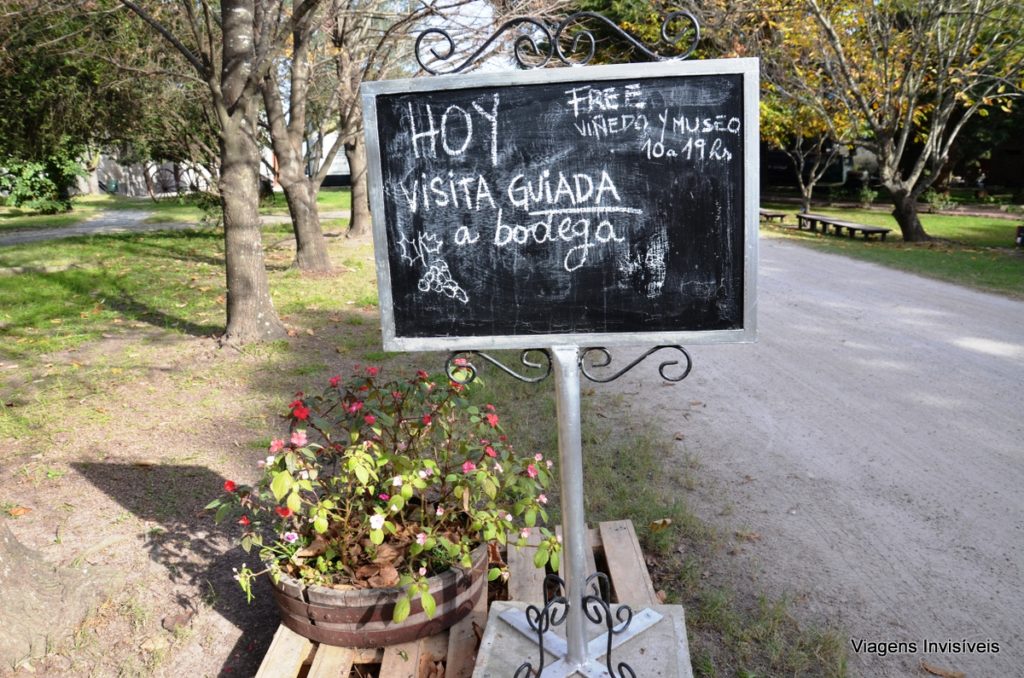 HOY
FREE
VIÑEDO Y MUSEO
10 a 19 hs
VISITA GUIADA
a bodega
Viagens Invisíveis